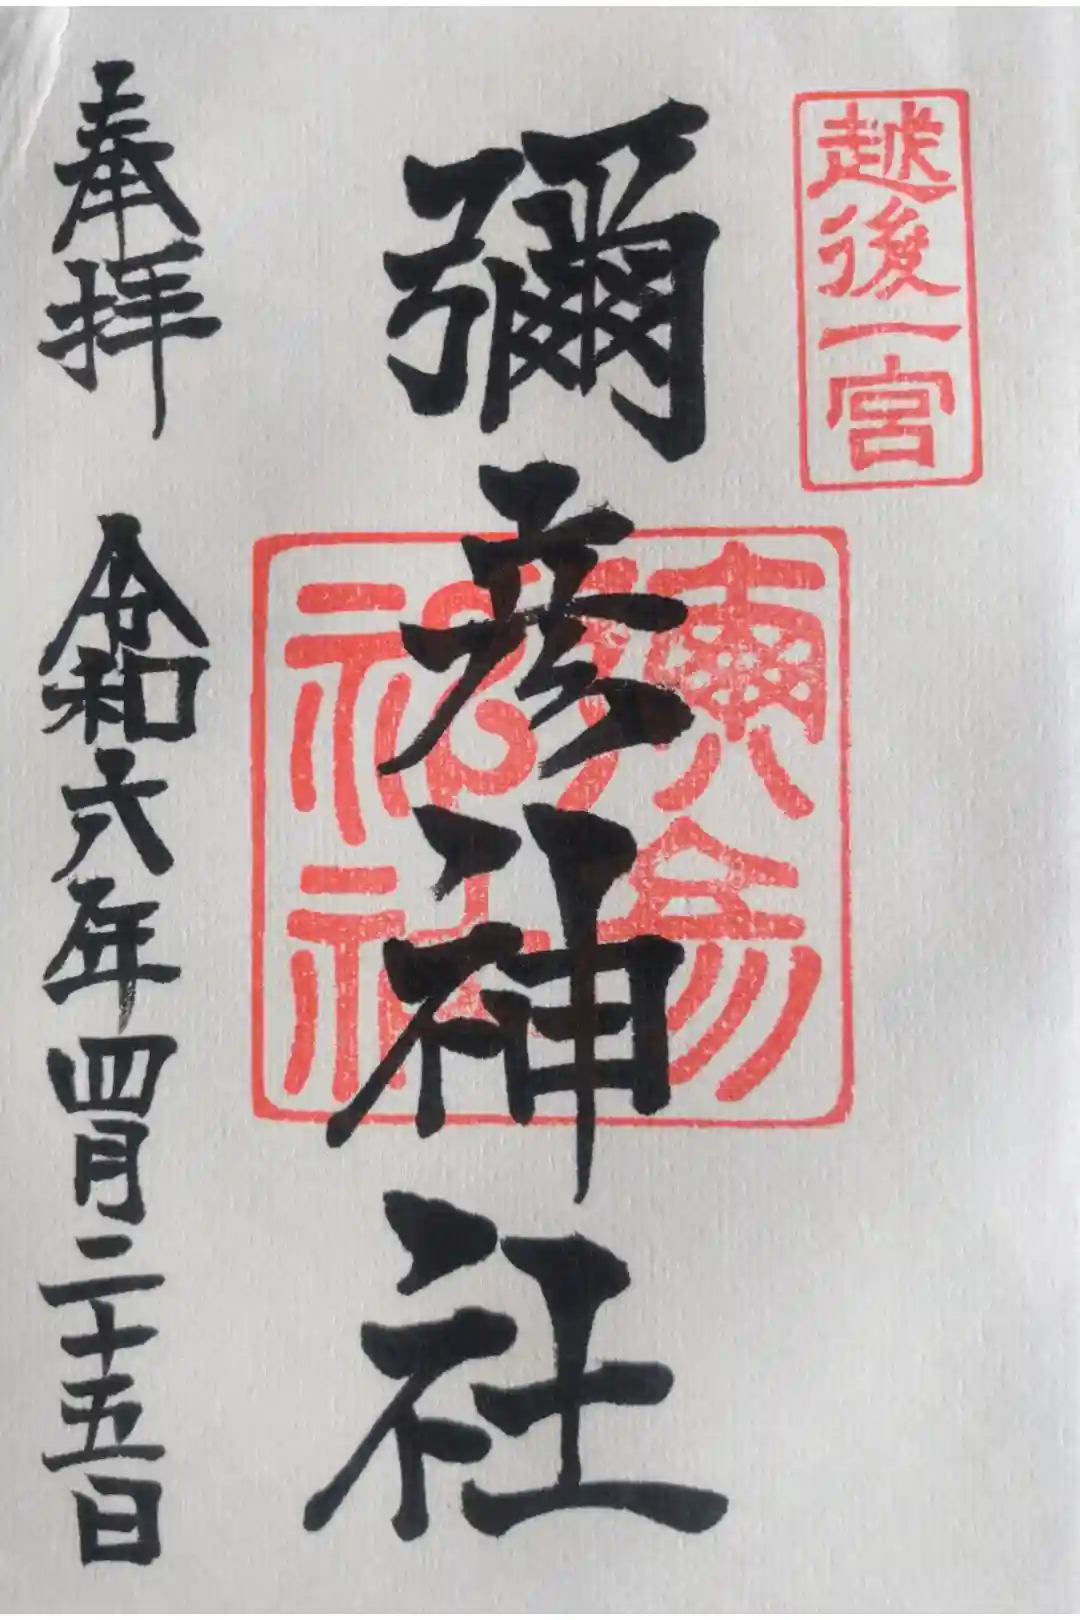 越後一宮
彌彦神社
奉拝
令和六年四月二十五日